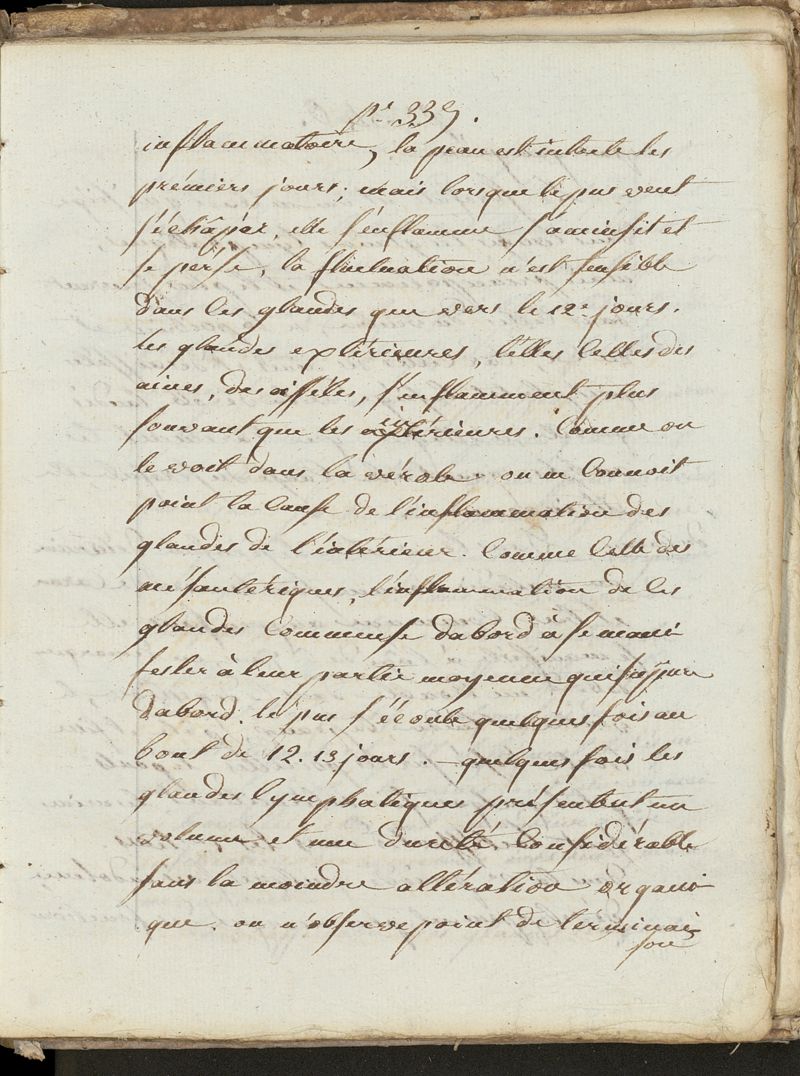 p.e 339.
inflammatoire, la peau est intacte les
prémiers jours; mais lorsque le pus veut
s'échâper, elle s'enflamme s'amincit et
se pérse, la fluctuation n'est sensible
dans les glandes que vers le 12e jours.
les glandes extérieures, telles celles des
aines, des aisséles, s'enflamment plus
souvant que les intérieures. Comme on
le voit dans la vérole. on ne connoit
point la cause de l'inflammation des
glandes de l'intérieur. Comme celle des
mésantériques, l'inflammation de ces
glandes commense dabord à se mani-
fester à leur partie moyenne qui supure
dabord. le pus s'écoule quelques fois au
bout de 12. 13 jours. — quelques fois les
glandes lymphatiques présentent un
volume et une dureté considérable
sans la moindre altération organi-
que. on n'observe point de términai-
son